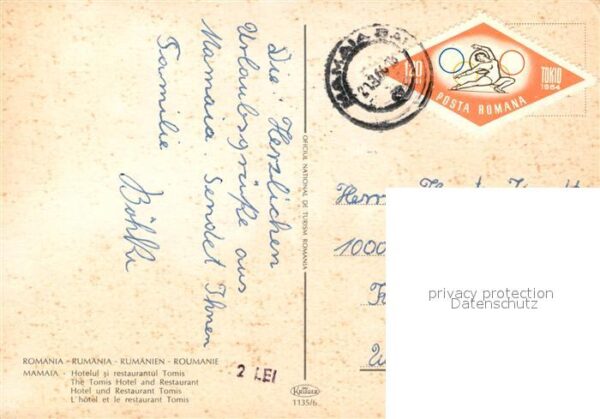 Die Herzlichen
Urlaubsgrüße aus
Mamaia. Sendet Ihnen
Familie
Böhlke
OFICIUL NATIONAL DE TURISM ROMANIA
MAMAIA
1.20
TOKIO
1964
POSTA ROMANA
Herrn
1000
privacy protection
Datenschutz
ROMANIA - RUMANIA - RUMÄNIEN - ROUMANIE
MAMAIA - Hotelul şi restaurantul Tomis
The Tomis Hotel and Restaurant
Hotel und Restaurant Tomis
L'hôtel et le restaurant Tomis
2 LEI
KRÜGER
1135/6